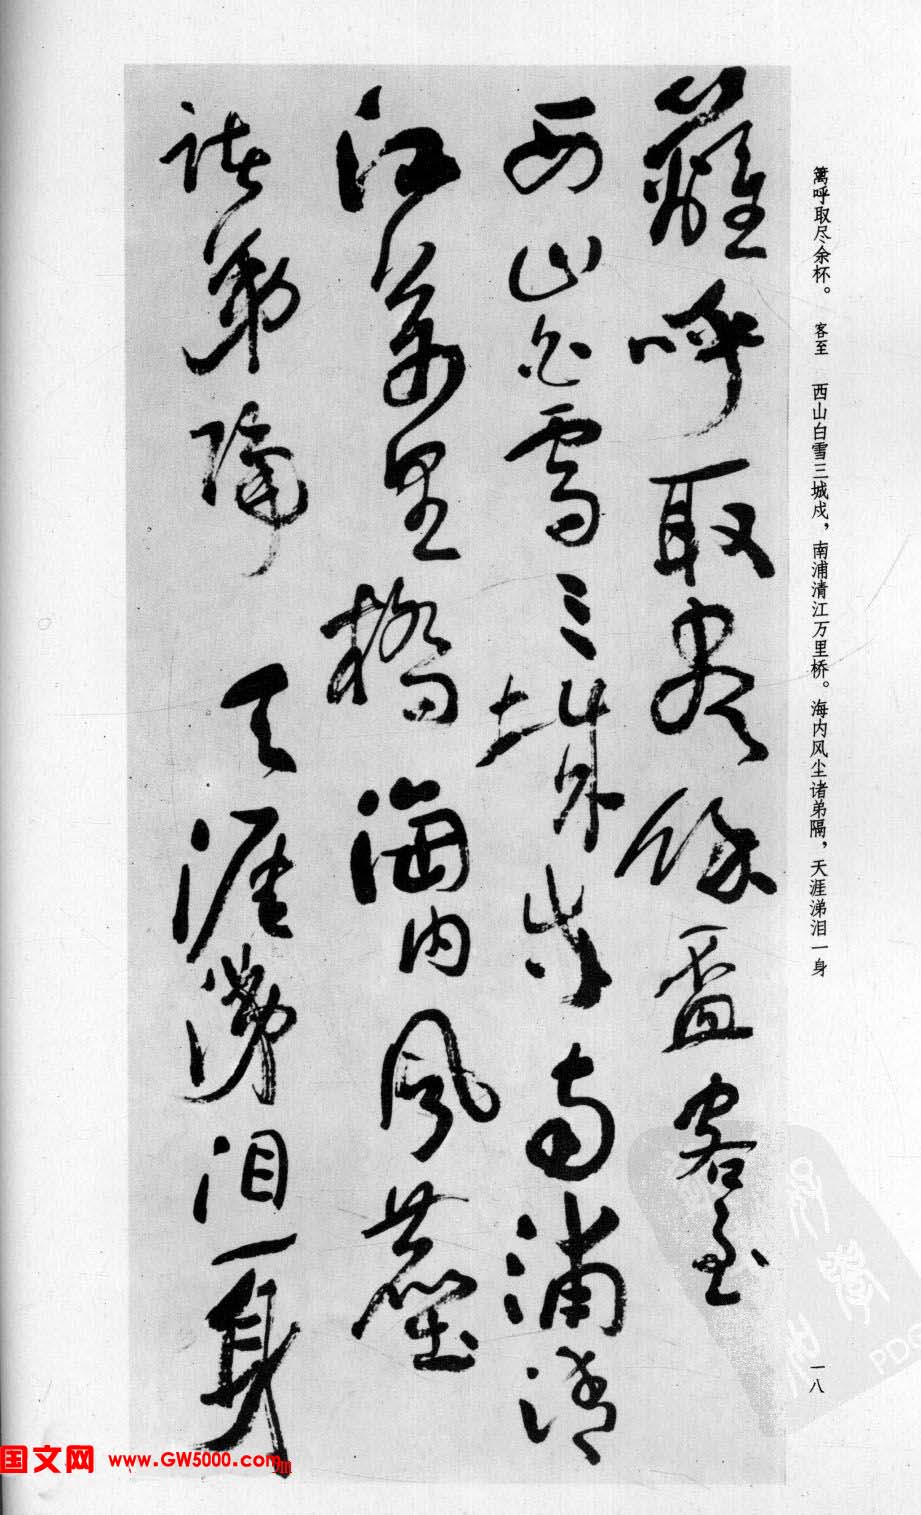 篱呼取尽余杯。 客至 西山白雪三城戍，南浦清江万里桥。海内风尘诸弟隔，天涯涕泪一身
籬呼取盡餘盃客至
西山白雪三城戍南浦清
江萬里橋海内風塵
諸弟隔天涯涕泪一身
一八
国文网 www.GW5000.com